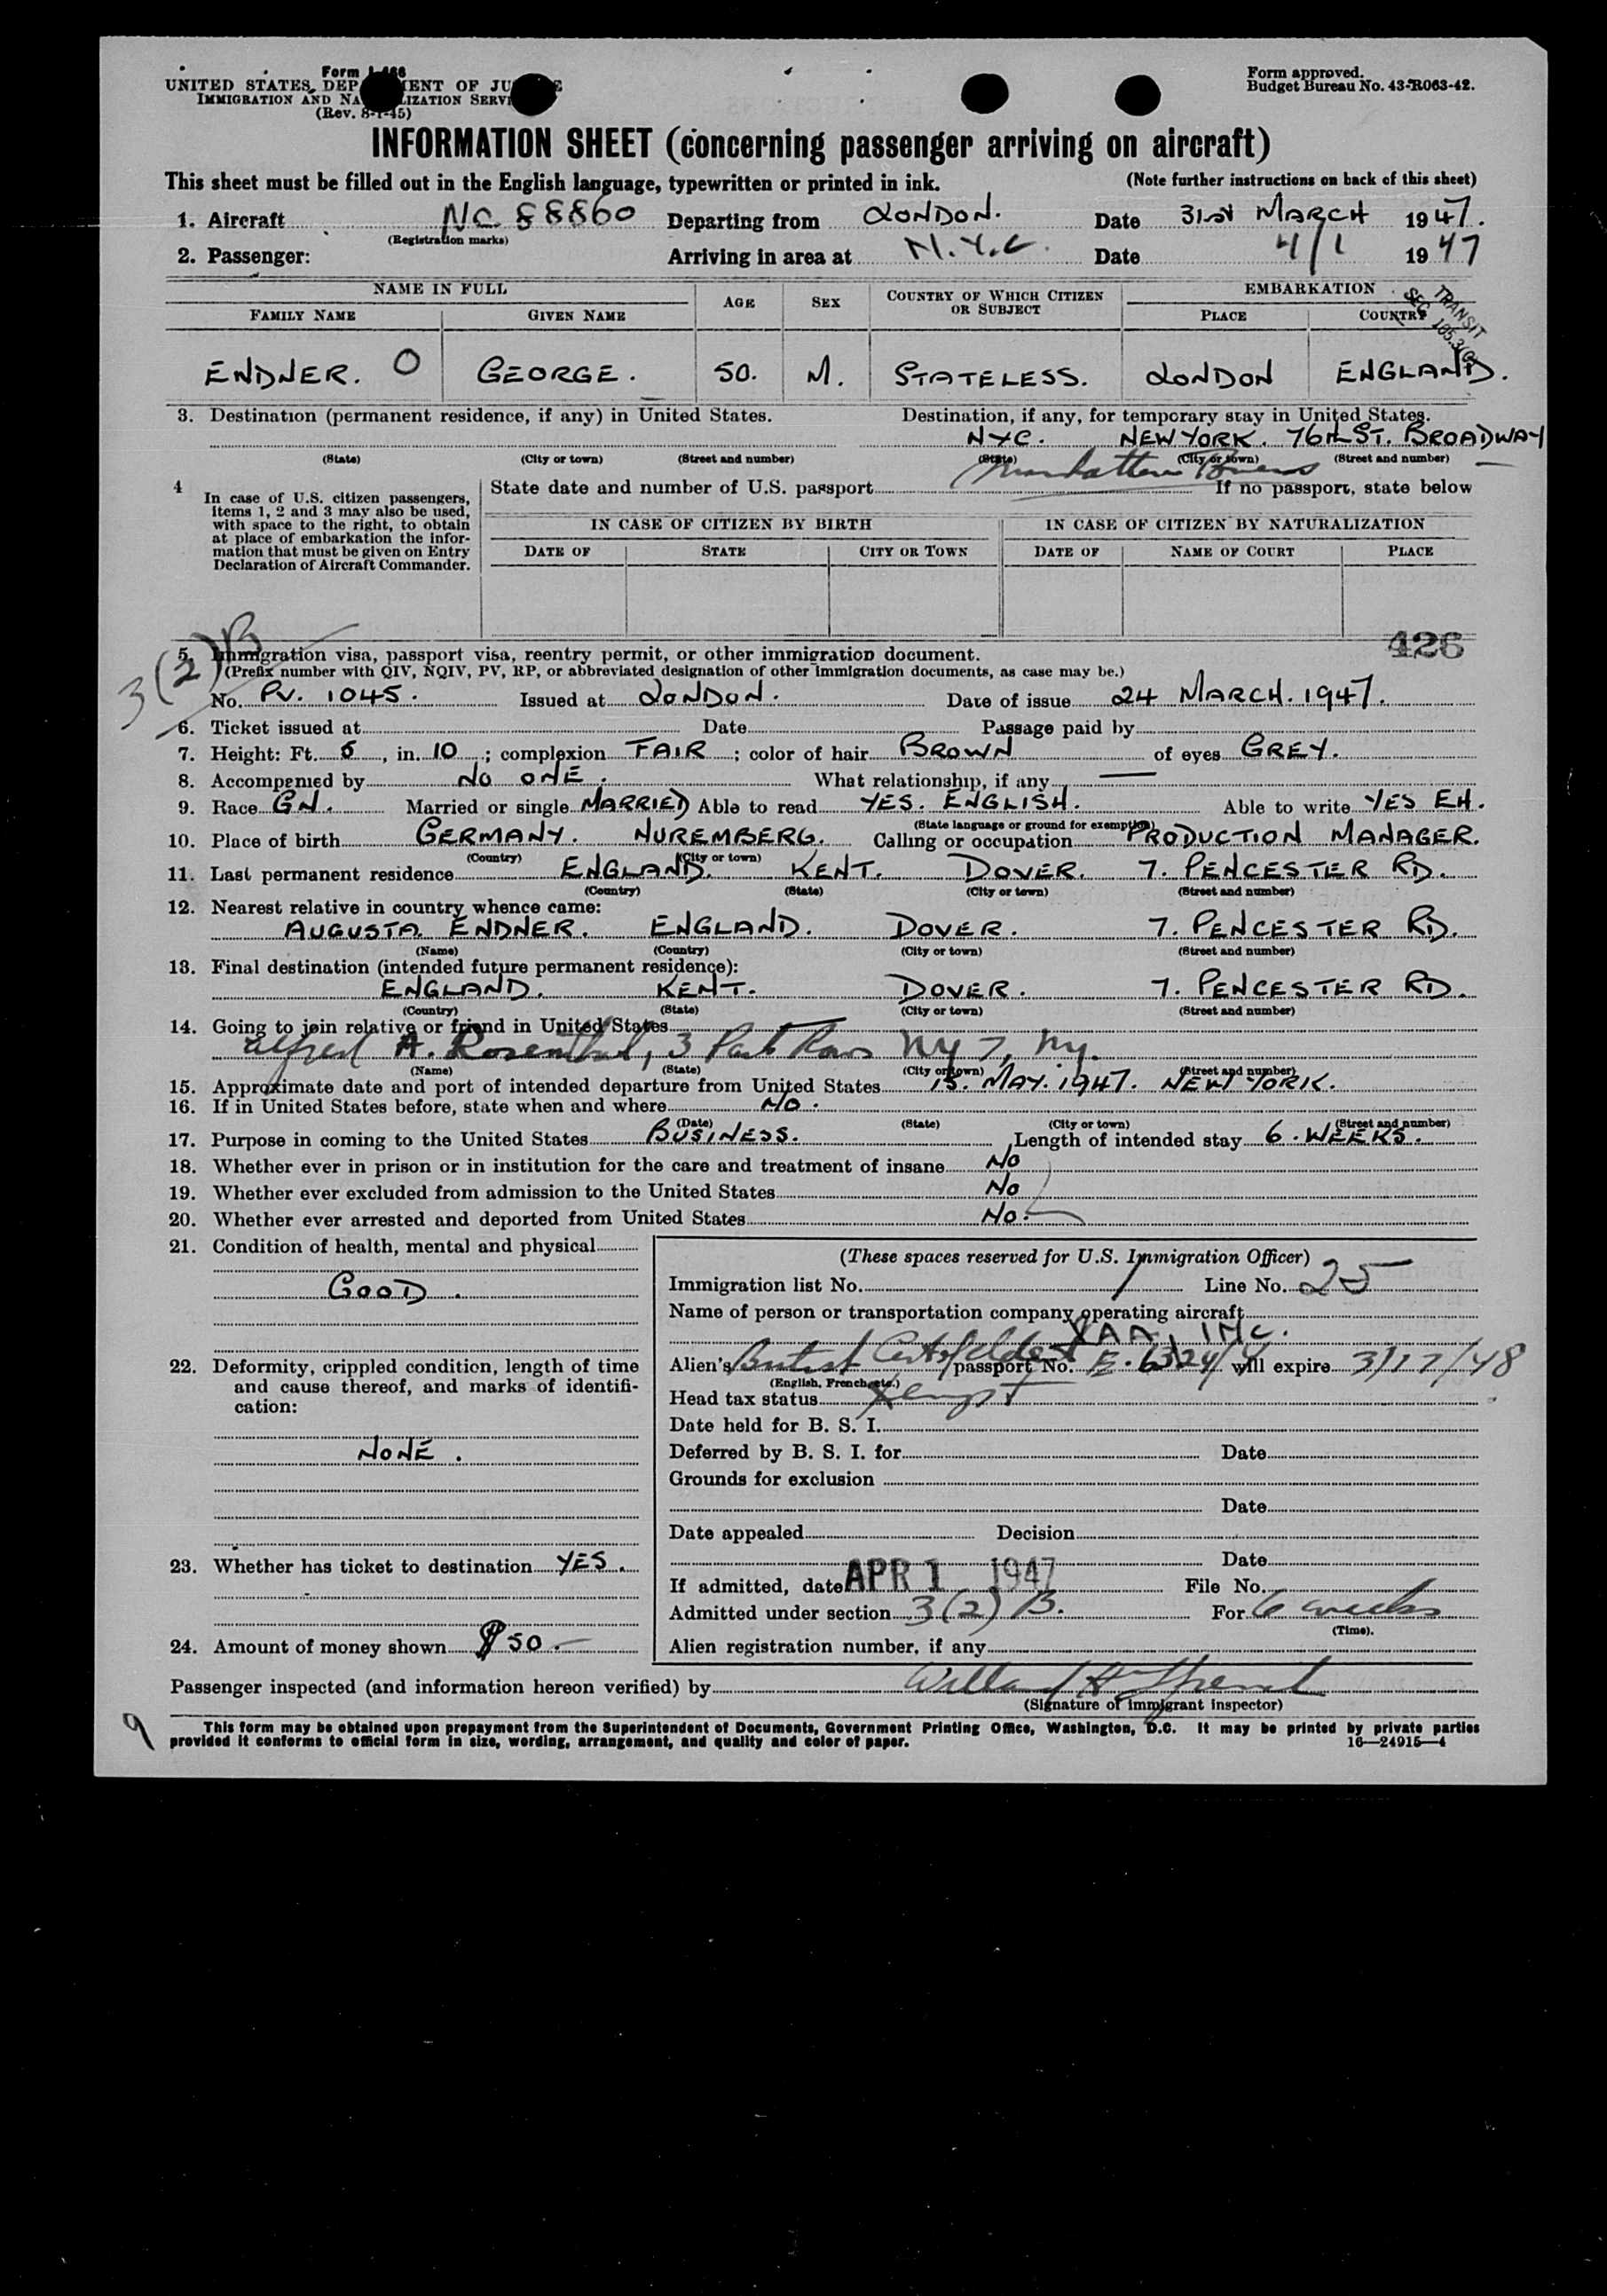 Form I-466
UNITED STATES DEPARTMENT OF JUSTICE
IMMIGRATION AND NATURALIZATION SERVICE
(Rev. 8-1-45)
Form approved.
Budget Bureau No. 43-R063-42.
INFORMATION SHEET (concerning passenger arriving on aircraft)
This sheet must be filled out in the English language, typewritten or printed in ink. (Note further instructions on back of this sheet)
1. Aircraft NC 88860 Departing from LONDON. Date 31st MARCH 1947.
(Registration marks)
2. Passenger: Arriving in area at N.Y.C. Date 4/1 1947
NAME IN FULL AGE SEX COUNTRY OF WHICH CITIZEN OR SUBJECT EMBARKATION
FAMILY NAME GIVEN NAME PLACE COUNTRY
TRANSIT
SEC. 105.3(C)
ENDNER. O GEORGE. 50. M. STATELESS. LONDON ENGLAND.
3. Destination (permanent residence, if any) in United States. Destination, if any, for temporary stay in United States.
NYC. NEW YORK. 76th ST. BROADWAY
(State) (City or town) (Street and number) (State) (City or town) (Street and number)
Manhattan Towers
4 In case of U.S. citizen passengers, items 1, 2 and 3 may also be used, with space to the right, to obtain at place of embarkation the information that must be given on Entry Declaration of Aircraft Commander.
State date and number of U.S. passport If no passport, state below
IN CASE OF CITIZEN BY BIRTH IN CASE OF CITIZEN BY NATURALIZATION
DATE OF STATE CITY OR TOWN DATE OF NAME OF COURT PLACE
426
3(2)B
5. Immigration visa, passport visa, reentry permit, or other immigration document.
(Prefix number with QIV, NQIV, PV, RP, or abbreviated designation of other immigration documents, as case may be.)
No. PV. 1045. Issued at LONDON. Date of issue 24 MARCH. 1947.
6. Ticket issued at Date Passage paid by
7. Height: Ft. 5, in. 10; complexion FAIR; color of hair BROWN of eyes GREY.
8. Accompanied by NO ONE. What relationship, if any —
9. Race GN. Married or single MARRIED Able to read YES. ENGLISH. Able to write YES EH.
(State language or ground for exemption)
10. Place of birth GERMANY. NUREMBERG. Calling or occupation PRODUCTION MANAGER.
(Country) (City or town)
11. Last permanent residence ENGLAND. KENT. DOVER. 7. PENCESTER RD.
(Country) (State) (City or town) (Street and number)
12. Nearest relative in country whence came:
AUGUSTA ENDNER. ENGLAND. DOVER. 7. PENCESTER RD.
(Name) (Country) (City or town) (Street and number)
13. Final destination (intended future permanent residence):
ENGLAND. KENT. DOVER. 7. PENCESTER RD.
(Country) (State) (City or town) (Street and number)
14. Going to join relative or friend in United States
Alfred A. Rosenthal, 3 Park Row NY 7, NY.
(Name) (State) (City or town) (Street and number)
15. Approximate date and port of intended departure from United States 15. MAY. 1947. NEW YORK.
16. If in United States before, state when and where NO.
(Date) (State) (City or town) (Street and number)
17. Purpose in coming to the United States BUSINESS. Length of intended stay 6. WEEKS.
18. Whether ever in prison or in institution for the care and treatment of insane No
19. Whether ever excluded from admission to the United States No
20. Whether ever arrested and deported from United States No.
21. Condition of health, mental and physical
GOOD.
22. Deformity, crippled condition, length of time and cause thereof, and marks of identification:
NONE.
23. Whether has ticket to destination YES.
24. Amount of money shown $50.—
(These spaces reserved for U.S. Immigration Officer)
Immigration list No. 1 Line No. 25
Name of person or transportation company operating aircraft
PAA, INC.
Alien's British passport No. will expire 3/17/48
(English, French, etc.)
Head tax status Exempt
Date held for B. S. I.
Deferred by B. S. I. for Date
Grounds for exclusion
Date
Date appealed Decision
Date
If admitted, date APR 1 1947 File No.
Admitted under section 3(2) B. For 6 weeks
(Time).
Alien registration number, if any
Passenger inspected (and information hereon verified) by
(Signature of immigrant inspector)
9
This form may be obtained upon prepayment from the Superintendent of Documents, Government Printing Office, Washington, D.C. It may be printed by private parties
provided it conforms to official form in size, wording, arrangement, and quality and color of paper. 16—24915—4